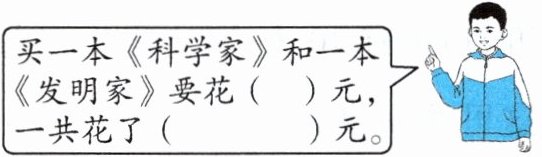 买一本《科学家》和一本
《发明家》要花（　）元，
一共花了（　　　）元。